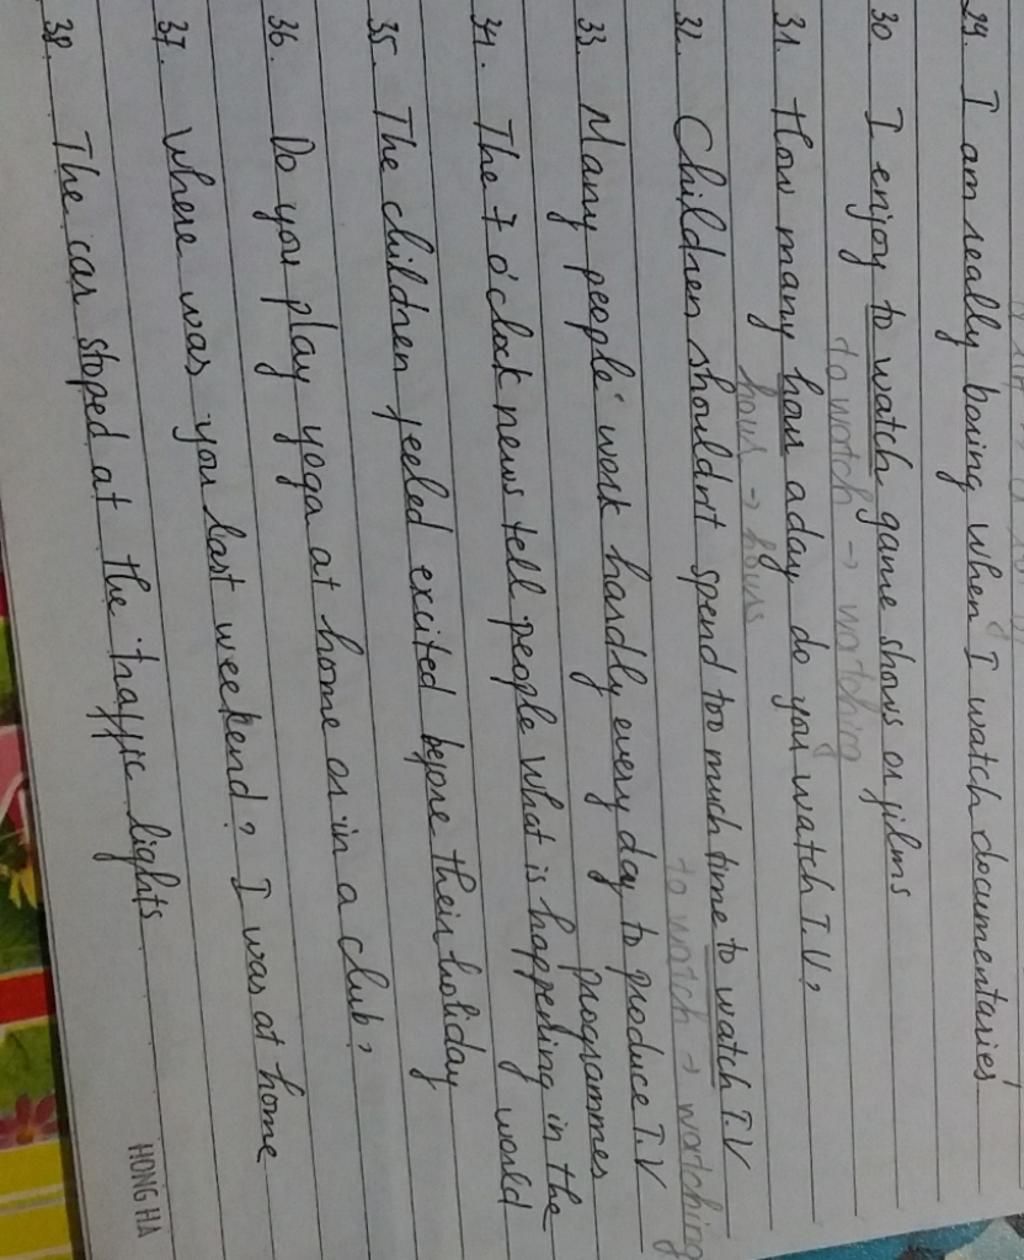 29. I am really boring when I watch documentaries
30 I enjoy to watch game shows or films
to watch → watching
31. How many hour a day do you watch T.V?
hour → hours
32. Children shouldn't spend too much time to watch T.V
to watch → watching
33. Many people work hardly every day to produce T.V
programmes
34. The 7 o'clock news tell people what is happening in the
world
35. The children feeled excited before their holiday
36. Do you play yoga at home or in a club?
37. Where was you last weekend? I was at home
38. The car stoped at the traffic lights
HONG HA